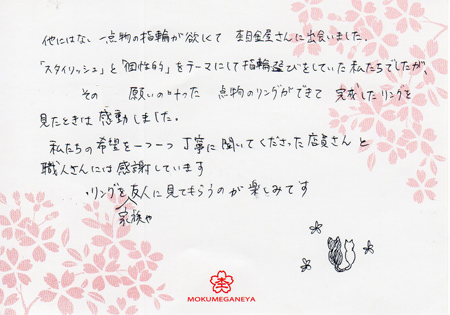 他にはない一点物の指輪が欲しくて 杢目金屋さんに出会いました。
「スタイリッシュ」と「個性的」をテーマにして指輪選びをしていた私たちでしたが、
その 願いの叶った 一点物のリングができて 完成したリングを
見たときは感動しました。
私たちの希望を一つ一つ丁寧に聞いてくださった店員さんと
職人さんには感謝しています
リングを友人に見てもらうのが楽しみです
家族や
MOKUMEGANEYA